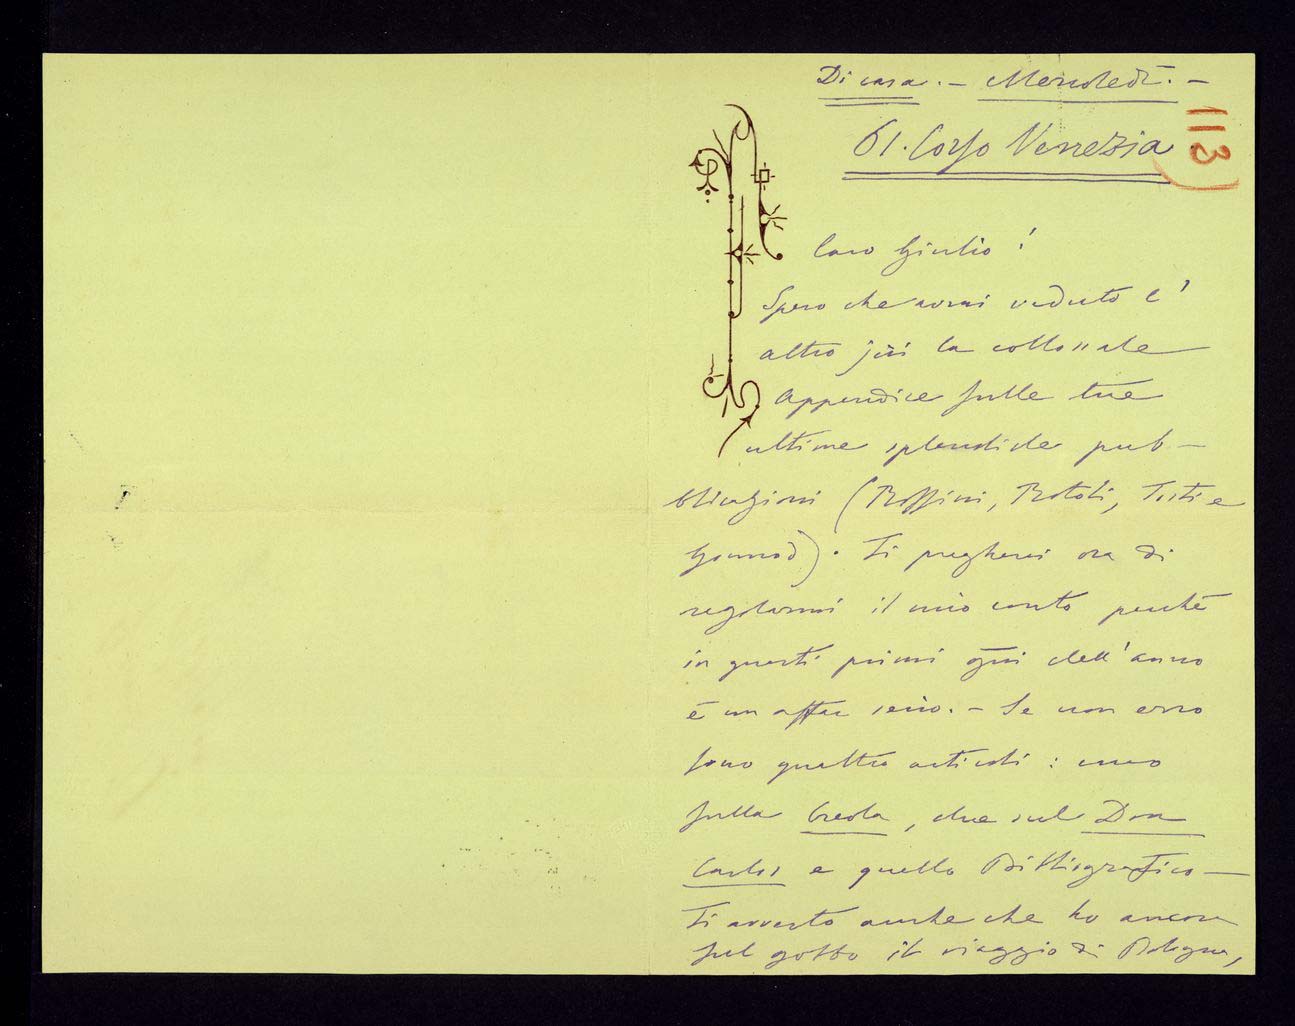 Di casa. - Mercoledì. -
61. Corso Venezia
113
Caro Giulio!
Spero che avrai veduto l'
altro jeri la collossale
appendice sulle tue
ultime splendide pub-
blicazioni (Rossini, Rotoli, Tosti e
Gounod). Ti pregherei ora di
regolarmi il mio conto perchè
in questi primi giorni dell'anno
è un affar serio. - Se non erro
sono quattro articoli: uno
sulla Creola, due sul Don
Carlos e quello Bibliografico -
Ti avverto anche che ho ancora
sul gobbo il viaggio di Bologna,